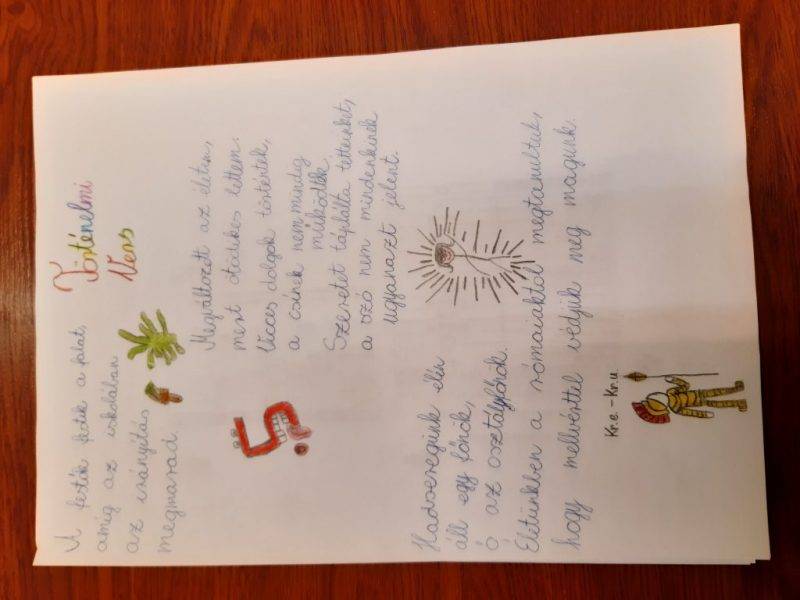 Történelmi
Vers
A festék festik a falat,
amíg az iskolában
az irányítás
megmarad.
Megváltozott az életem,
mert ötödikes lettem.
Vicces dolgok történtek,
a csínek nem mindig
működtek.
Szeretet táplálta tetteinket,
a szó nem mindenkinek
ugyanazt jelent.
Hadseregünk élén
áll egy főnök,
ő az osztályfőnök.
Életünkben a rómaiaktól megtanultuk,
hogy mellvérttel védjük meg magunk.
Kr.e. - Kr.u.
5